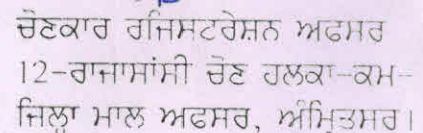 ਚੋਣਕਾਰ ਰਜਿਸਟਰੇਸ਼ਨ ਅਫਸਰ
12-ਰਾਜਾਸਾਂਸੀ ਚੋਣ ਹਲਕਾ-ਕਮ-
ਜਿਲ੍ਹਾ ਮਾਲ ਅਫਸਰ, ਅੰਮ੍ਰਿਤਸਰ।